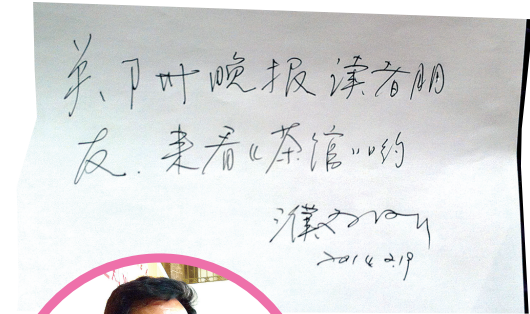 郑州晚报读者朋
友.来看《茶馆》哟
濮存昕
2014.2.19